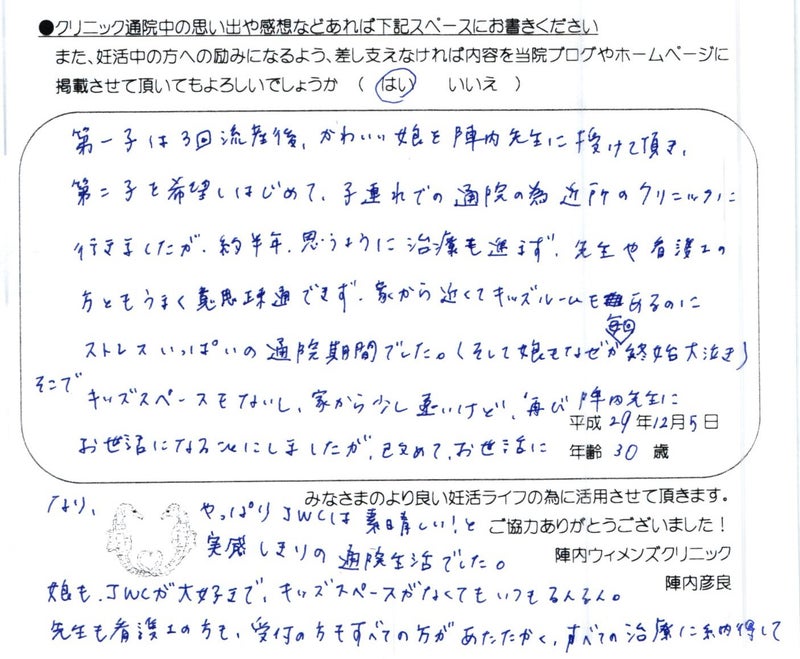 ●クリニック通院中の思い出や感想などあれば下記スペースにお書きください
また、妊活中の方への励みになるよう、差し支えなければ内容を当院ブログやホームページに
掲載させて頂いてもよろしいでしょうか （ はい いいえ ）
第一子は3回流産後、かわいい娘を陣内先生に授けて頂き、
第二子を希望しはじめて、子連れでの通院の為近所のクリニックに
行きましたが、約半年、思うように治療も進まず、先生や看護士の
方ともうまく意思疎通できず、家から近くてキッズルームもあるのに
毎回
ストレスいっぱいの通院期間でした。（そして娘もなぜか終始大泣き）
そこで
キッズスペースもないし、家から少し遠いけど、再び陣内先生に
平成29年12月5日
お世話になることにしましたが、改めて、お世話に
年齢 30 歳
みなさまのより良い妊活ライフの為に活用させて頂きます。
なり、
やっぱりJWCは素晴しい！と
ご協力ありがとうございました！
実感しきりの通院生活でした。
陣内ウィメンズクリニック
陣内彦良
娘も、JWCが大好きで、キッズスペースがなくてもいつもるんるん。
先生も看護士の方も、受付の方もすべての方があたたかく、すべての治療に納得して